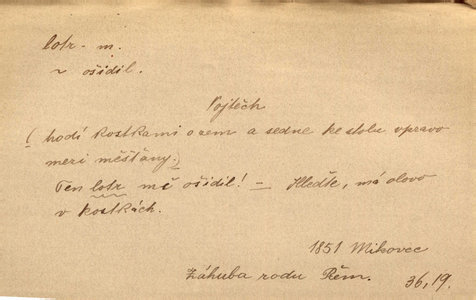 lotr - m.
~ ošidil.
Vojtěch
( hodí kostkami o zem a sedne ke stolu vpravo
mezi měšťany.)
Ten lotr mě ošidil! — Hleďte, má olovo
v kostkách.
1851 Mikovec
Záhuba rodu Přem. 36, 19.